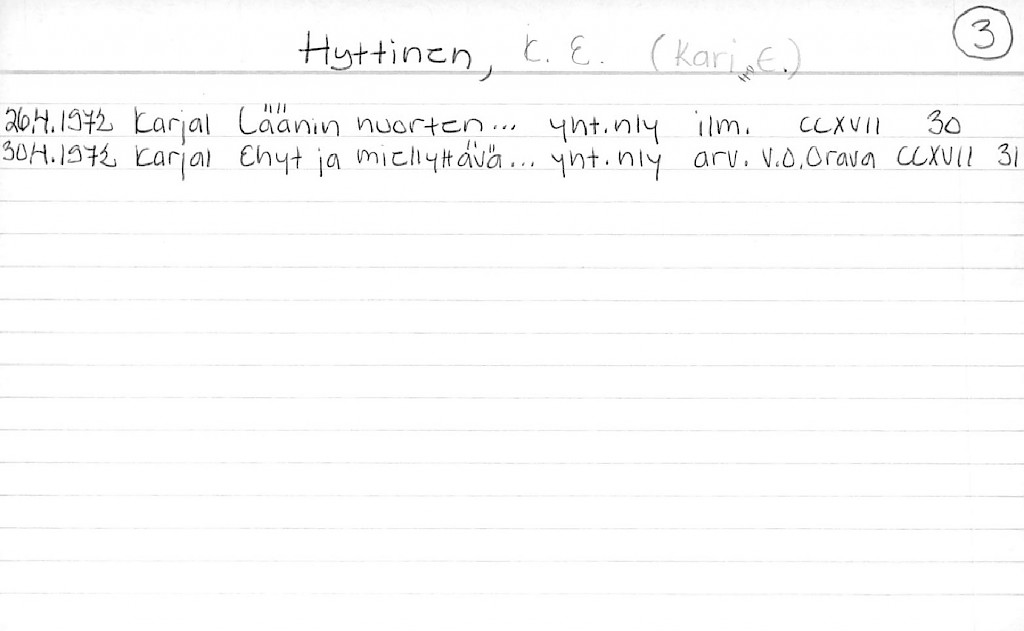 3
Hyttinen, K. E. (Kari E.)
26.4.1972 Karjal Läänin nuorten... yht.nly ilm. CCXVII 30
30.4.1972 Karjal Ehyt ja miellyttävä... yht.nly arv. V.O.Orava CCXVII 31